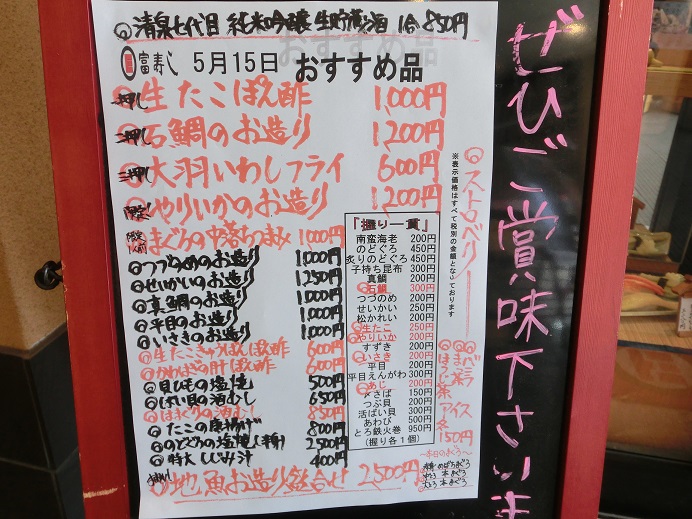 清泉七代目 純米吟醸 生貯蔵酒 1合 850円
富寿し 5月15日 おすすめ品
一押し 生たこぽん酢 1,000円
二押し 石鯛のお造り 1,200円
三押し 大羽いわしフライ 600円
やりいかのお造り 1,200円
まぐろの中落ちつまみ 1,000円
つづらめのお造り 1,000円
せいかいのお造り 1,250円
真鯛のお造り 1,000円
平目のお造り 1,000円
いさきのお造り 1,000円
生たこきゅうぽん酢 600円
かわはぎの肝ぽん酢 600円
貝ひもの塩焼 500円
ばい貝の酒むし 650円
はまぐりの酒むし 850円
たこの唐揚げ 800円
のどぐろの塩焼(半身) 2,500円
特大しじみ汁 400円
地魚お造り盛合せ 2,500円
「握り一貫」
南蛮海老 200円
のどぐろ 450円
炙りのどぐろ 450円
子持ち昆布 300円
真鯛 200円
石鯛 300円
つづのめ 200円
せいかい 250円
松かれい 200円
生たこ 250円
やりいか 250円
すずき 200円
いさき 200円
平目 200円
平目えんがわ 300円
あじ 200円
〆さば 150円
つぶ貝 200円
活ばい貝 300円
あわび 500円
とろ鉄火巻 950円
(握り各1個)
※表示価格はすべて税別の金額となっております
ストロベリー
抹茶
アイス
各150円
〜本日のまぐろ〜
ぜひご賞味下さいま